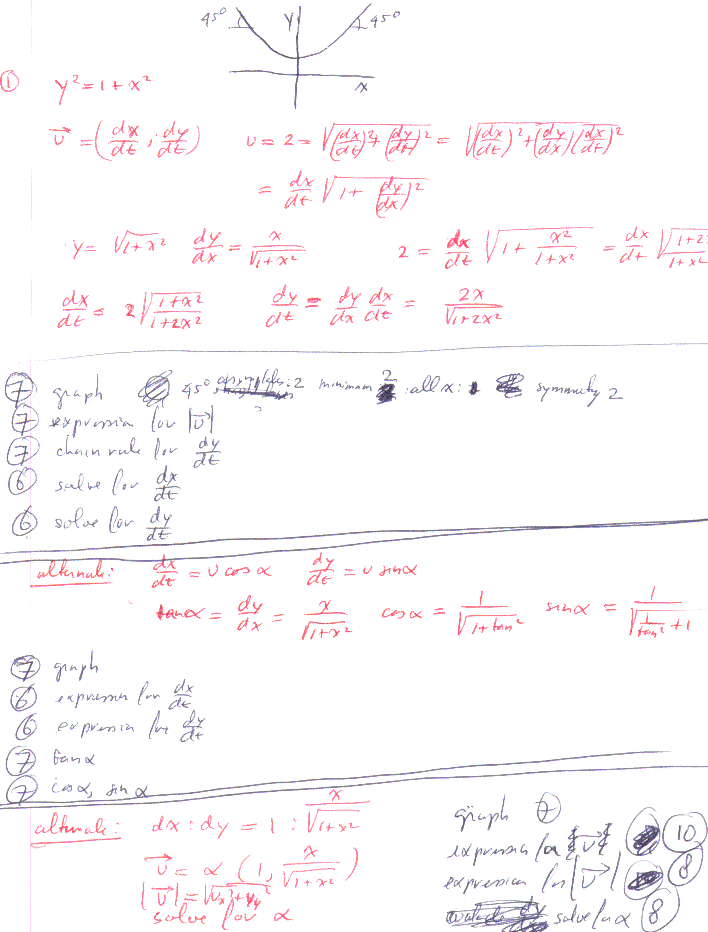 45° y 45°
x
① y² = 1 + x²
v⃗ = (dx/dt, dy/dt) v = 2 = √((dx/dt)² + (dy/dt)²) = √((dx/dt)² + (dy/dx)(dx/dt)²
= dx/dt √(1 + (dy/dx)²)
y = √(1+x²) dy/dx = x/√(1+x²) 2 = dx/dt √(1 + x²/(1+x²)) = dx/dt √(1+2 / 1+x²
dx/dt = 2√((1+x²)/(1+2x²)) dy/dt = dy/dx dx/dt = 2x/√(1+2x²)
⑦ graph 45° asymptotes: 2 minimum 2 : all x: symmetry 2
⑦ expression for |v⃗|
⑦ chain rule for dy/dt
⑥ solve for dx/dt
⑥ solve for dy/dt
alternate: dx/dt = v cos α dy/dt = v sin α
tan α = dy/dx = x/√(1+x²) cos α = 1/√(1+tan²) sin α = 1/√(1/tan² + 1)
⑦ graph
⑥ expression for dx/dt
⑥ expression for dy/dt
⑦ tan α
⑦ cos α, sin α
alternate: dx : dy = 1 : x/√(1+x²)
v⃗ = α (1, x/√(1+x²))
|v⃗| = √(vx² + vy²)
solve for α
graph ⑦
expression for v⃗ ⑩
expression for |v⃗| ⑧
solve for α ⑧